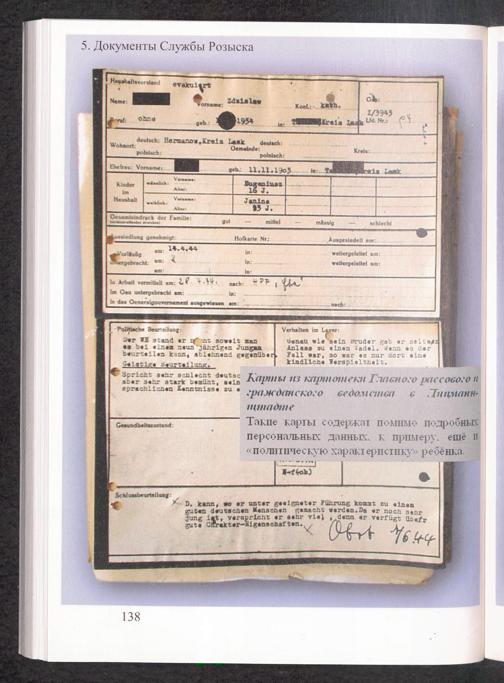 5. Документы Службы Розыска
Haushaltsvorstand evakuiert
Name: Vorname: Zdzislaw Konf.: kath.
Beruf: ohne geb.: 1934 in: Kreis Lask
I/3943
Lfd. Nr.:
Wohnort: deutsch: Hermanow, Kreis Lask deutsch:
polnisch: Gemeinde: polnisch: Kreis:
Ehefrau: Vorname: geb.: 11.11.1903 in: Kreis Lask
Kinder im Haushalt
männlich: Vorname: Eugeniusz
Alter: 16 J.
weiblich: Vorname: Janina
Alter: 93 J.
Gesamteindruck der Familie: gut — mittel — mässig — schlecht
Aussiedlung genehmigt: Hofkarte Nr.: Ausgesiedelt am:
Vorläufig am: 14.4.44 in: weitergeleitet am:
untergebracht: am: in: weitergeleitet am:
am: in:
In Arbeit vermittelt am: nach:
Im Gau untergebracht am: in:
In das Generalgouvernement ausgewiesen am: nach:
Politische Beurteilung:
Der WE stand er nicht soweit man
es bei einem neun jährigen Jungen
beurteilen kann, ablehnend gegenüber.
Geistige Beurteilung.
Spricht sehr schlecht deutsc
aber sehr stark bemüht, sein
sprachlichen Kenntnisse zu e
Verhalten im Lager:
Genau wie sein Bruder gab er selten
Anlass zu einem Tadel. Wenn es der
Fall war, so war es nur dort eine
kindliche Verspieltheit.
Карты из картотеки Главного рассового и
гражданского ведомства в Лицманн-
штадте
Такие карты содержат помимо подробных
персональных данных, к примеру, ещё и
«политическую характеристику» ребёнка.
Gesundheitszustand:
Schlussbeurteilung:
D. kann, wo er unter geeigneter Führung kommt zu einen
guten deutschen Menschen gemacht werden. Da er noch sehr
jung ist, verspricht er sehr viel, denn er verfügt übefr
gute Charakter-Eigenschaften.
138